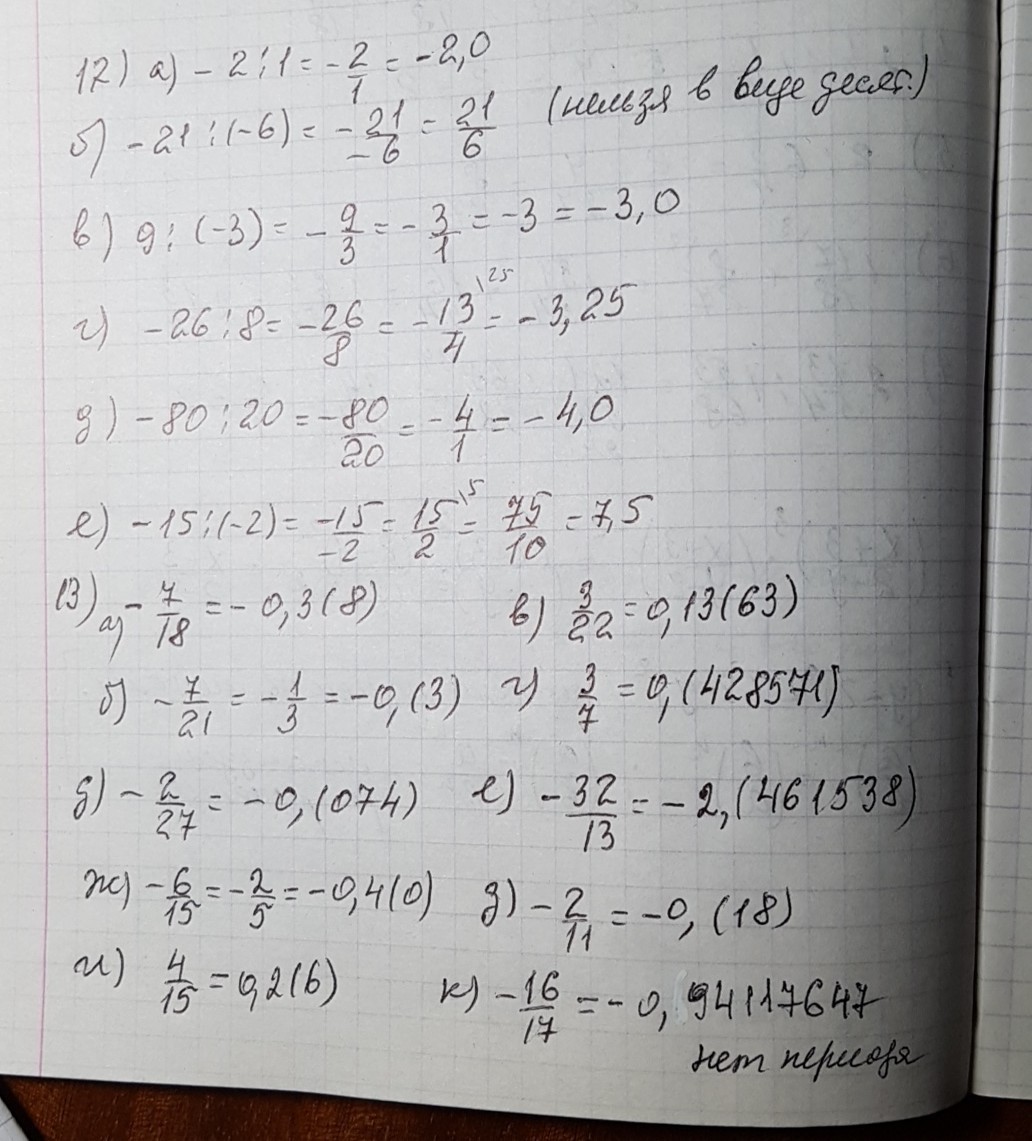 12) а) - 2 : 1 = - 2/1 = -2,0
б) - 21 : (-6) = - 21/-6 = 21/6 (нельзя в виде десят.)
в) 9 : (-3) = - 9/3 = - 3/1 = -3 = -3,0
г) - 26 : 8 = - 26/8 = - 13\25/4 = - 3,25
д) - 80 : 20 = - 80/20 = - 4/1 = - 4,0
е) - 15 : (-2) = -15/-2 = 15\5/2 = 75/10 = 7,5
13) а) - 7/18 = - 0,3(8) в) 3/22 = 0,13(63)
б) - 7/21 = - 1/3 = -0,(3) г) 3/7 = 0,(428571)
д) - 2/27 = -0,(074) е) - 32/13 = - 2,(461538)
ж) - 6/15 = - 2/5 = -0,4(0) з) - 2/11 = -0,(18)
и) 4/15 = 0,2(6) к) - 16/17 = - 0,94117647
нет периода